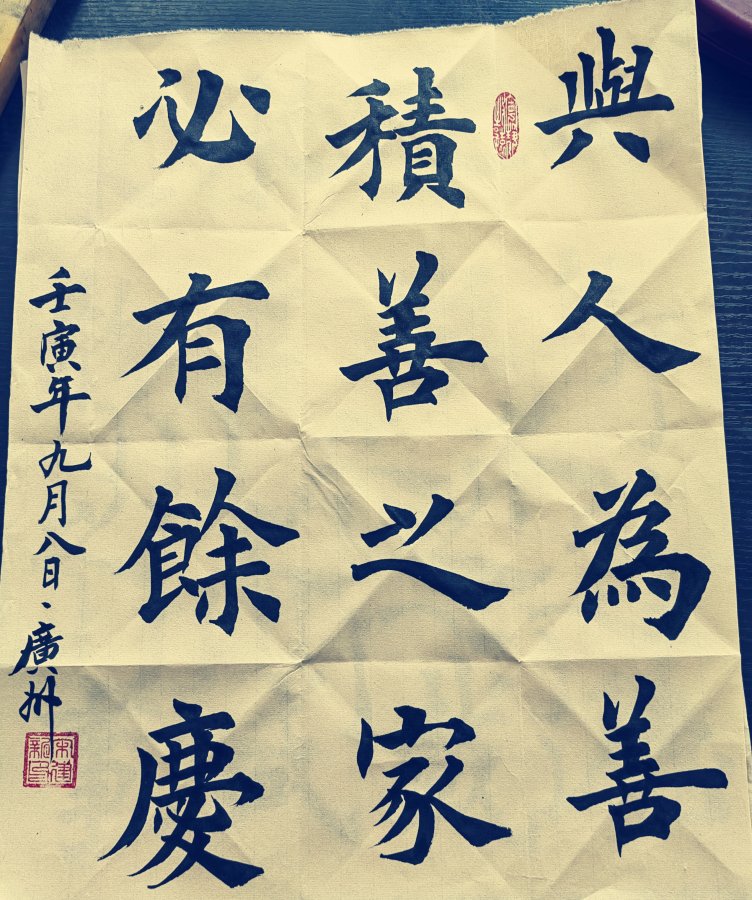 與人為善
積善之家
必有餘慶
壬寅年九月八日、廣州